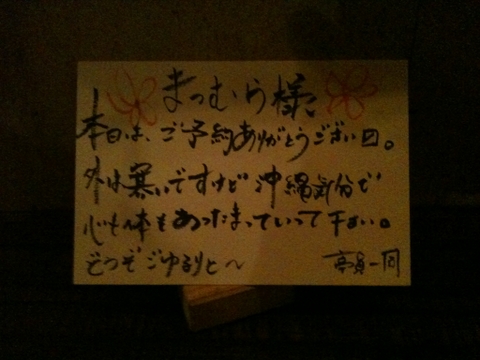 まつむら様
本日は、ご予約ありがとうござい〼。
外は寒いですけど沖縄気分で
心も体もあったまっていって下さい。
どうぞごゆるりと〜
一同